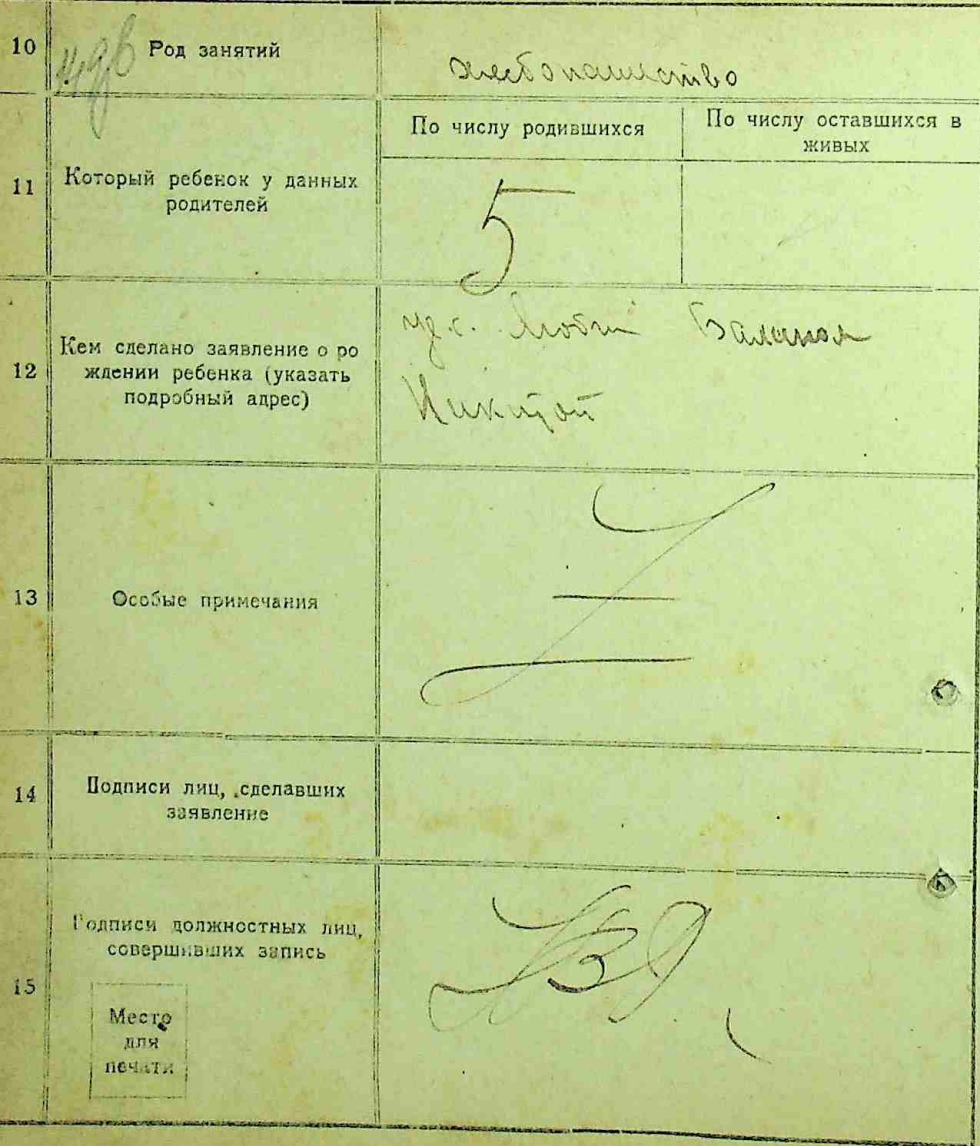 10 Род занятий хлебопашество
По числу родившихся
По числу оставшихся в
живых
11 Который ребенок у данных
родителей
5
12 Кем сделано заявление о ро
ждении ребенка (указать
подробный адрес)
13 Особые примечания
14 Подписи лиц, сделавших
заявление
15 Подписи должностных лиц,
совершивших запись
Место
для
печати